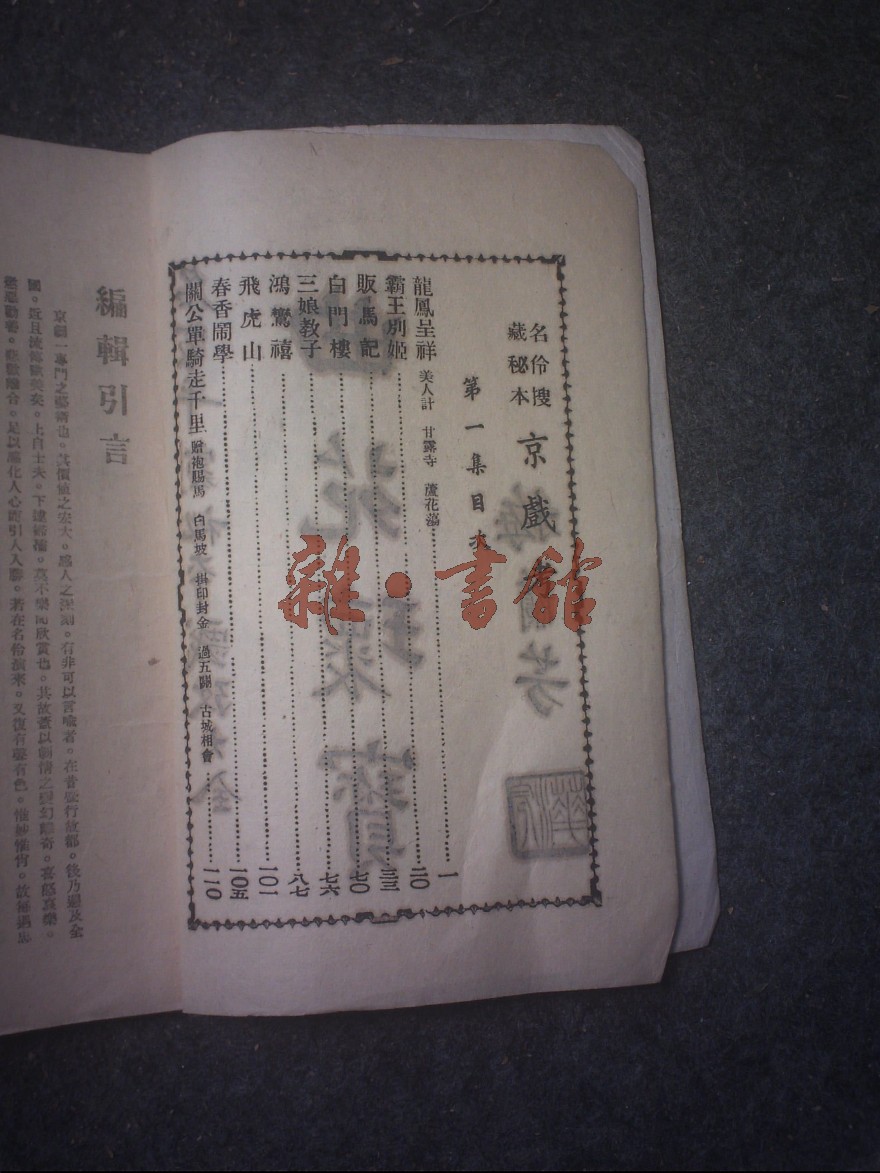 名伶搜
藏秘本
京戲
第一集目次
龍鳳呈祥 美人計 甘露寺 蘆花蕩……一
霸王別姬……二〇
販馬記……三三
白門樓……七〇
三娘教子……七六
鴻鸞禧……八七
飛虎山……一〇一
春香鬧學……一〇五
關公單騎走千里 贈袍賜馬 白馬坡 掛印封金 過五關 古城相會……一一〇
編輯引言
京劇一專門之藝術也。其價值之宏大。感人之深刻。有非可以言喻者。在昔盛行故都。後乃遍及全
國。近且流傳歐美矣。上自士夫。下逮婦孺。莫不樂聞欣賞也。其故蓋以劇情之變幻離奇。喜怒哀樂。
離合。足以感化人心而引人入勝。若在名伶演來。又復有聲有色。惟妙惟肖。故每遇
雜·書館